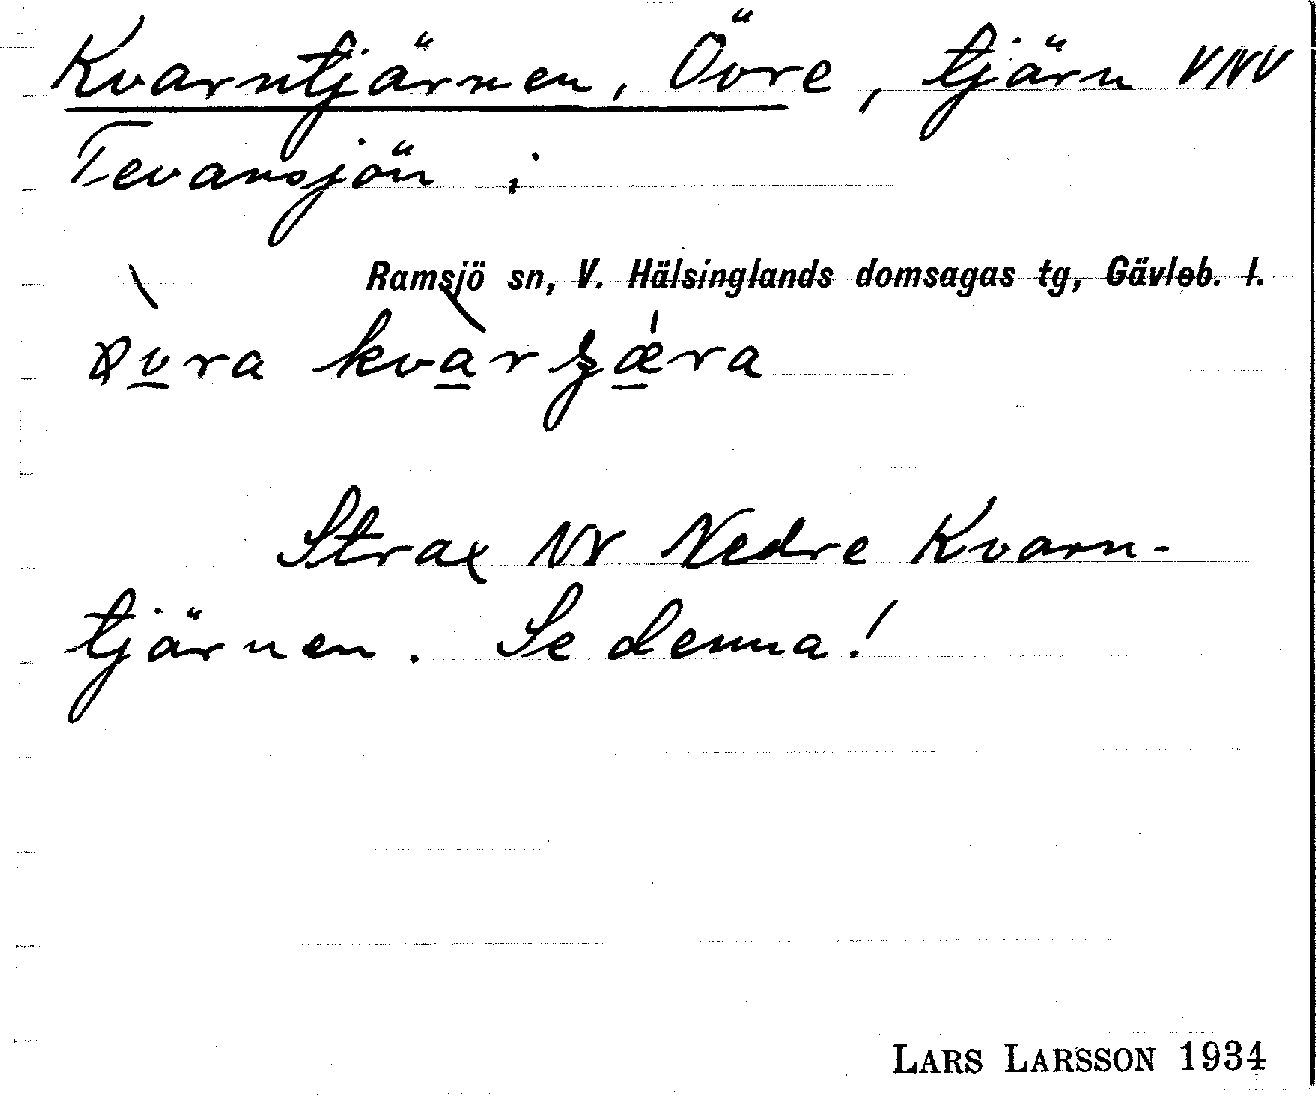 Kvarntjärnen, Övre, tjärn VNV
Tevansjön i
Ramsjö sn, V. Hälsinglands domsagas tg, Gävleb. l.
kvàr
Strax NV Nedre Kvarn-
tjärnen. Se denna!
LARS LARSSON 1934